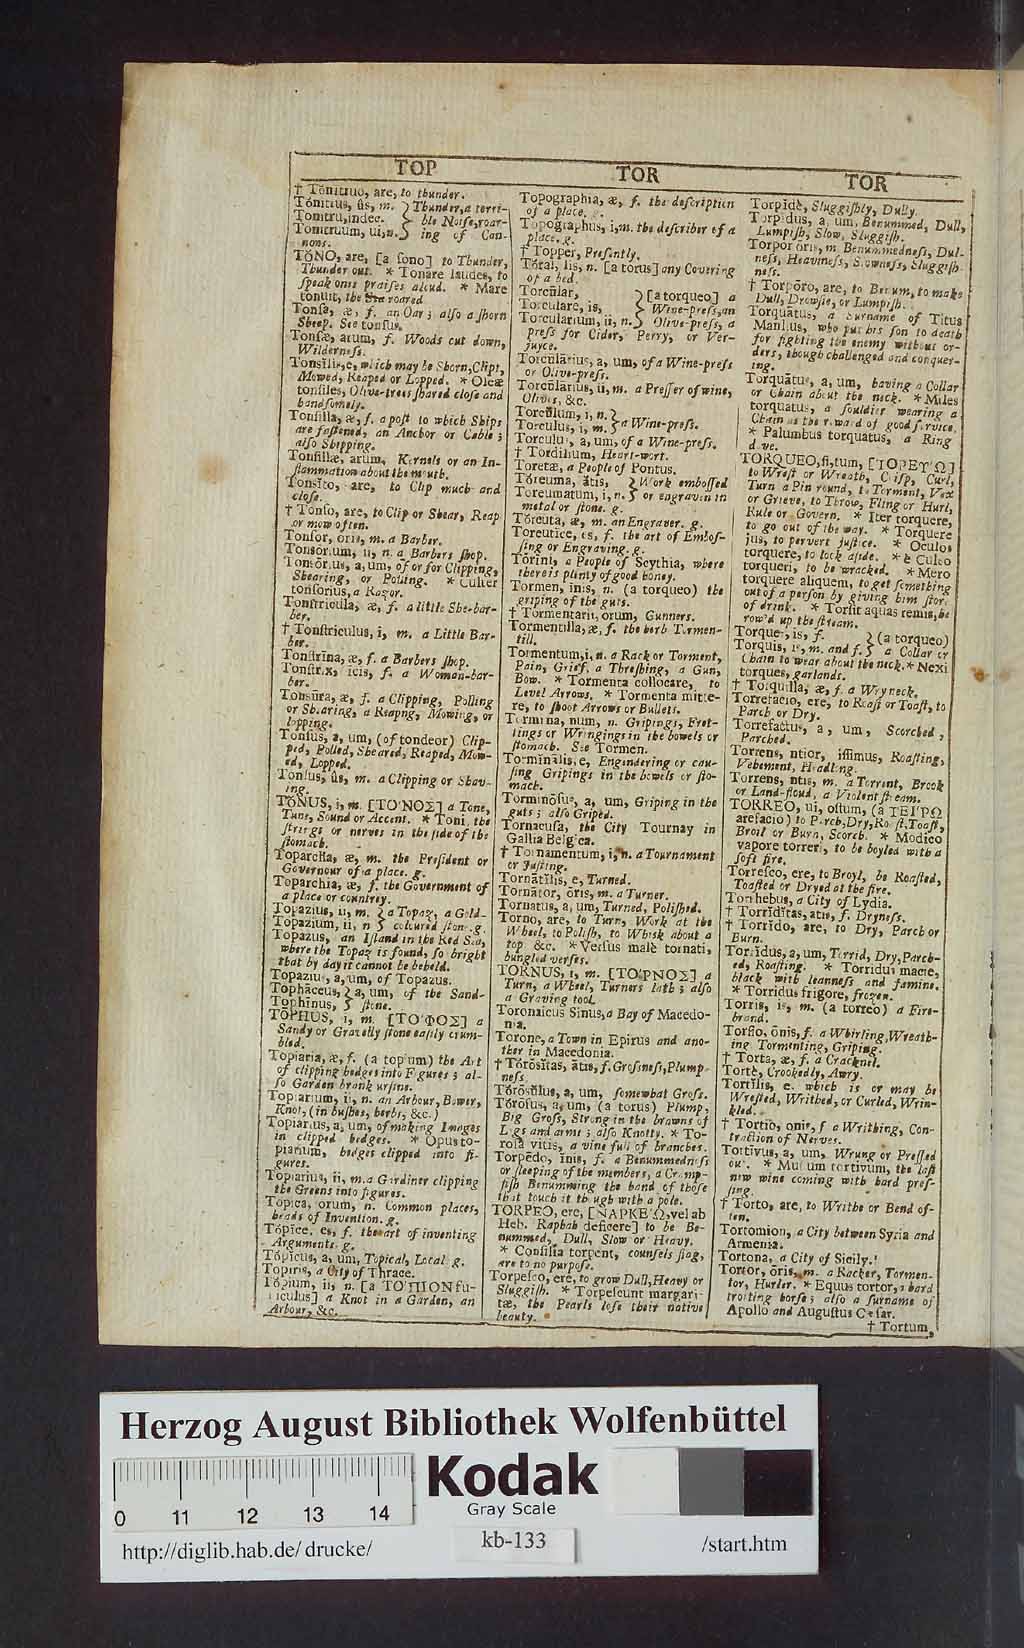 TOP
TOR
TOR
† Tŏnitruo, are, to thunder.
Tŏnitrus, ûs, m. } Thunder, a terri-
Tonitru, indec. } ble Noise, roar-
Tonitruum, ui, n. } ing of Can-
nons.
TŎNO, are, [a sono] to Thunder,
Thunder out. * Tonare laudes, to
ſpeak ones praiſes aloud. * Mare
tonuit, the Sea roared
Tonſa, æ, f. an Oar; alſo a ſhorn
Sheep. See tonſus.
Tonſæ, arum, f. Woods cut down,
Wilderneſs.
Tonſilis, e, which may be Shorn, Clipt,
Mowed, Reaped or Lopped. * Oleæ
tonſiles, Olive-trees ſhaved cloſe and
handſomely.
Tonſilla, æ, f. a poſt to which Ships
are faſtened, an Anchor or Cable;
alſo Shipping.
Tonſillæ, arum, Kernels or an In-
flammation about the mouth.
Tonsĭto, are, to Clip much and
cloſe.
† Tonſo, are, to Clip or Shear, Reap
or mow often.
Tonſor, ōris, m. a Barber.
Tonsōrium, ii, n. a Barbers ſhop.
Tonſōrius, a, um, of or for Clipping,
Shearing, or Polling. * Culter
tonſorius, a Razor.
Tonſtricula, æ, f. a little She-bar-
ber.
† Tonſtriculus, i, m. a Little Bar-
ber.
Tonſtrīna, æ, f. a Barbers ſhop.
Tonſtrix, īcis, f. a Woman-bar-
ber.
Tonsūra, æ, f. a Clipping, Polling
or Shearing, a Reapng, Mowing, or
lopping.
Tonſus, a, um, (of tondeor) Clip-
ped, Polled, Sheared, Reaped, Mow-
ed, Lopped.
Tonſus, ûs, m. a Clipping or Shav-
ing.
TŎNUS, i, m. [ΤΟ'ΝΟΣ] a Tone,
Tune, Sound or Accent. * Toni, the
ſtrings or nerves in the ſide of the
ſtomach.
Toparcha, æ, m. the Preſident or
Governour of a place. g.
Toparchia, æ, f. the Government of
a place or countrey.
Topazius, ii, m. } a Topaz, a Gold-
Topazium, ii, n } coloured ſtone. g.
Topazus, an Iſland in the Red Sea,
where the Topaz is found, ſo bright
that by day it cannot be beheld.
Topazius, a, um, of Topazus.
Tophāceus, } a, um, of the Sand-
Tophīnus, } ſtone.
TŌPHUS, i, m. [ΤΟ'ΦΟΣ] a
Sandy or Gravelly ſtone eaſily crum-
bled.
Topiaria, æ, f. (a topium) the Art
of clipping hedges into Figures; al-
ſo Garden brank urſins.
Topiarium, ii, n. an Arbour, Bower,
Knot, (in buſhes, herbs, &c.)
Topiarius, a, um, of making Images
in clipped hedges. * Opus to-
piarium, hedges clipped into fi-
gures.
Topiarius, ii, m. a Gardiner clipping
the Greens into figures.
Topica, orum, n. Common places,
heads of Invention. g.
Tŏpĭce, es, f. the art of inventing
Arguments. g.
Tŏpĭcus, a, um, Topical, Local g.
Topiris, a City of Thrace.
Tŏpium, ii, n. [a ΤΟ'ΠΙΟΝ fu-
niculus] a Knot in a Garden, an
Arbour, &c.
Topographia, æ, f. the deſcription
of a place. g.
Topographus, i, m. the deſcriber of a
place. g.
† Topper, Preſently.
Tŏral, lis, n. [a torus] any Covering
of a bed.
Torcular, } [a torqueo] a
Torculare, is, } Wine-preſs, an
Torcularium, ii, n. } Olive-preſs, a
preſs for Cider, Perry, or Ver-
juyce.
Torculārius, a, um, of a Wine-preſs
or Olive-preſs.
Torculārius, ii, m. a Preſſer of wine,
Olives, &c.
Torcŭlum, i, n. }
Torculus, i, m. } a Wine-preſs.
Torculus, a, um, of a Wine-preſs.
† Tordilium, Heart-wort.
Toretæ, a People of Pontus.
Tŏreuma, ătis, } Work emboſſed
Toreumatum, i, n. } or engraven in
metal or ſtone. g.
Tŏreuta, æ, m. an Engraver. g.
Toreutice, es, f. the art of Emboſ-
ſing or Engraving. g.
Tŏrini, a People of Scythia, where
there is plenty of good honey.
Tormen, inis, n. (a torqueo) the
griping of the guts.
† Tormentarii, orum, Gunners.
Tormentilla, æ, f. the herb Tormen-
till.
Tormentum, i, n. a Rack or Torment,
Pain, Grief, a Threſhing, a Gun,
Bow. * Tormenta collocare, to
Level Arrows. * Tormenta mitte-
re, to ſhoot Arrows or Bullets.
Tormina, num, n. Gripings, Fret-
tings or Wringings in the bowels or
ſtomach. See Tormen.
Tormĭnālis, e, Engendering or cau-
ſing Gripings in the bowels or ſto-
mach.
Tormĭnōſus, a, um, Griping in the
guts; alſo Griped.
Tornacuſa, the City Tournay in
Gallia Belgica.
† Tornamentum, i, n. a Tournament
or Juſting.
Tornātĭlis, e, Turned.
Tornātor, ōris, m. a Turner.
Tornatus, a, um, Turned, Poliſhed.
Torno, are, to Turn, Work at the
Wheel, to Poliſh, to Whisk about a
top, &c. * Verſus malè tornati,
bungled verſes.
TORNUS, i, m. [ΤΟ'ΡΝΟΣ] a
Turn, a Wheel, Turners lath; alſo
a Graving tool.
Toronaicus Sinus, a Bay of Macedo-
nia.
Torone, a Town in Epirus and ano-
ther in Macedonia.
† Tŏrōsĭtas, ātis, f. Groſsneſs, Plump-
neſs.
Tŏrōsŭlus, a, um, ſomewhat Groſs.
Tŏrōſus, a, um, (a torus) Plump,
Big Groſs, Strong in the brawns of
Legs and arms; alſo Knotty. * To-
roſa vitis, a vine full of branches.
Torpēdo, ĭnis, f. a Benummedneſs
or ſleeping of the members, a Cramp-
fiſh Benumming the hand of thoſe
that touch it though with a pole.
TORPEO, ere, [ΝΑΡΚΕ'Ω, vel ab
Heb. Raphah deficere] to be Be-
nummed, Dull, Slow or Heavy.
* Conſilia torpent, counſels flag,
are to no purpoſe.
Torpeſco, ere, to grow Dull, Heavy or
Sluggiſh. * Torpeſcunt margari-
tæ, the Pearls loſe their native
beauty.
Torpĭdè, Sluggiſhly, Dully.
Torpĭdus, a, um, Benummed, Dull,
Lumpiſh, Slow, Sluggiſh.
Torpor ōris, m. Benummedneſs, Dul-
neſs, Heavineſs, Slowneſs, Sluggiſh-
neſs.
† Torpŏro, are, to Benum, to make
Dull, Drowſie, or Lumpiſh.
Torquātus, a Surname of Titus
Manlius, who put his ſon to death
for fighting the enemy without or-
ders, though challenged and conquer-
ing.
Torquātus, a, um, having a Collar
or Chain about the neck. * Miles
torquatus, a ſouldier wearing a
Chain as the reward of good ſervice.
* Palumbus torquatus, a Ring
dove.
TORQUEO, ſi, tum, [ΤΟΡΕΥ'Ω]
to Wreſt or Wreath, Criſp, Curl,
Turn a Pin round, to Torment, Vex
or Grieve, to Throw, Fling or Hurl,
Rule or Govern. * Iter torquere,
to go out of the way. * Torquere
jus, to pervert juſtice. * Oculos
torquere, to look aſide. * è Culeo
torqueri, to be wracked. * Mero
torquere aliquem, to get ſomething
out of a perſon by giving him ſtore
of drink. * Torſit aquas remis, he
row'd up the ſtream.
Torques, is, f. } (a torqueo)
Torquis, is, m. and f. } a Collar or
Chain to wear about the neck. * Nexi
torques, garlands.
† Torquilla, æ, f. a Wryneck.
Torrefacio, ere, to Roaſt or Toaſt, to
Parch or Dry.
Torrefactus, a, um, Scorched,
Parched.
Torrens, ntior, iſſimus, Roaſting,
Vehement, Headlong.
Torrens, ntis, m. a Torrent, Brook
or Land-floud, a Violent ſtream.
TORREO, ui, oſtum, (a ΤΕΙ'ΡΩ
arefacio) to Parch, Dry, Roaſt, Toaſt,
Broil or Burn, Scorch. * Modico
vapore torreri, to be boyled with a
ſoft fire.
Torreſco, ere, to Broyl, be Roaſted,
Toaſted or Dryed at the fire.
Torrhebus, a City of Lydia.
† Torrĭdĭtas, atis, f. Dryneſs.
† Torrĭdo, are, to Dry, Parch or
Burn.
Torrĭdus, a, um, Torrid, Dry, Parch-
ed, Roaſting. * Torridus macie,
black with leanneſs and famine.
* Torridus frigore, frozen.
Torris, is, m. (a torreo) a Fire-
brand.
Torſio, ōnis, f. a Whirling, Wreath-
ing Tormenting, Griping.
† Torta, æ, f. a Cracknel.
Tortè, Crookedly, Awry.
Tortĭlis, e. which is or may be
Wreſted, Writhed, or Curled, Wrin-
kled.
† Tortio, onis, f a Writhing, Con-
traction of Nerves.
Tortīvus, a, um, Wrung or Preſſed
out. * Muſtum tortivum, the laſt
new wine coming with hard preſ-
ſing.
† Torto, are, to Writhe or Bend of-
ten.
Tortomion, a City between Syria and
Armenia.
Tortona, a City of Sicily.
Tortor, ōris, m. a Racker, Tormen-
tor, Hurler. * Equus tortor, a hard
trotting horſe; alſo a ſurname of
Apollo and Auguſtus Cæſar.
† Tortum,
Herzog August Bibliothek Wolfenbüttel
0 11 12 13 14
Kodak
Gray Scale
http://diglib.hab.de/ drucke/
kb-133
/start.htm